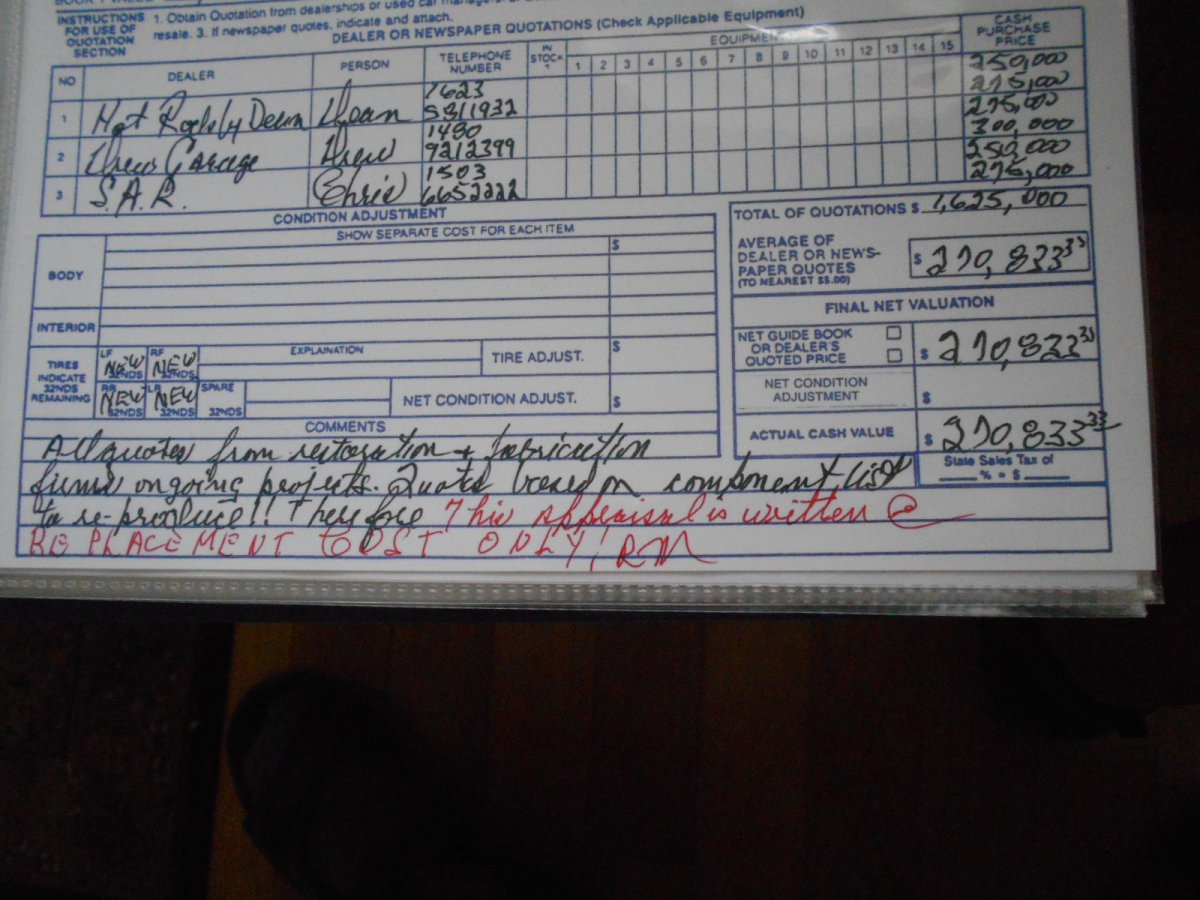 INSTRUCTIONS 1. Obtain Quotation from dealerships or used car
FOR USE OF resale. 3. If newspaper quotes, indicate and attach.
QUOTATION
SECTION
DEALER OR NEWSPAPER QUOTATIONS (Check Applicable Equipment)
CASH
PURCHASE
PRICE
NO DEALER PERSON TELEPHONE NUMBER IN STOCK ? EQUIPMENT
1 2 3 4 5 6 7 8 9 10 11 12 13 14 15
250,000
1623 275,000
1 Hot Rods by Dean Dean 5811932 275,000
1480 300,000
2 Drews Garage Drew 9212399 250,000
1503 275,000
3 S.A.R. Chris 6652222
CONDITION ADJUSTMENT
SHOW SEPARATE COST FOR EACH ITEM
BODY
$
INTERIOR
TIRES
INDICATE
32NDS
REMAINING
LF NEW 32NDS RF NEW 32NDS
EXPLAINATION
TIRE ADJUST. $
RR NEW 32NDS LR NEW 32NDS SPARE 32NDS
NET CONDITION ADJUST. $
TOTAL OF QUOTATIONS $ 1,625,000
AVERAGE OF
DEALER OR NEWS-
PAPER QUOTES
(TO NEAREST $5.00)
$ 270,833 33
FINAL NET VALUATION
NET GUIDE BOOK
OR DEALER'S
QUOTED PRICE
$ 270,833 33
NET CONDITION
ADJUSTMENT $
ACTUAL CASH VALUE $ 270,833 33
State Sales Tax of
% = $
COMMENTS
All quotes from restoration + fabrication
firms ongoing projects. Quote based on component list
to re-produce!! Therefore This Appraisal is written @
REPLACEMENT COST ONLY! RM